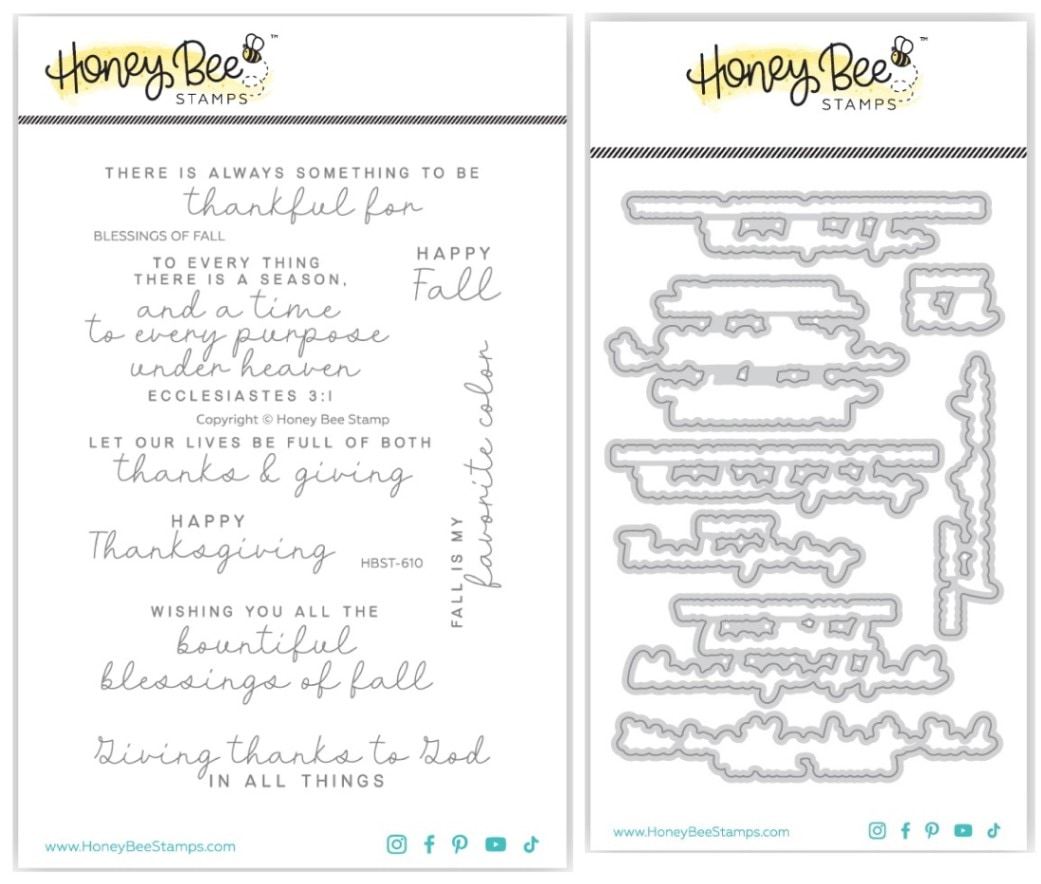 Honey Bee™
STAMPS
THERE IS ALWAYS SOMETHING TO BE
thankful for
BLESSINGS OF FALL
TO EVERY THING
THERE IS A SEASON,
and a time
to every purpose
under heaven
ECCLESIASTES 3:1
Copyright © Honey Bee Stamp
HAPPY
Fall
LET OUR LIVES BE FULL OF BOTH
thanks & giving
HAPPY
Thanksgiving
HBST-610
FALL IS MY
favorite color
WISHING YOU ALL THE
bountiful
blessings of fall
Giving thanks to God
IN ALL THINGS
www.HoneyBeeStamps.com
Honey Bee™
STAMPS
www.HoneyBeeStamps.com